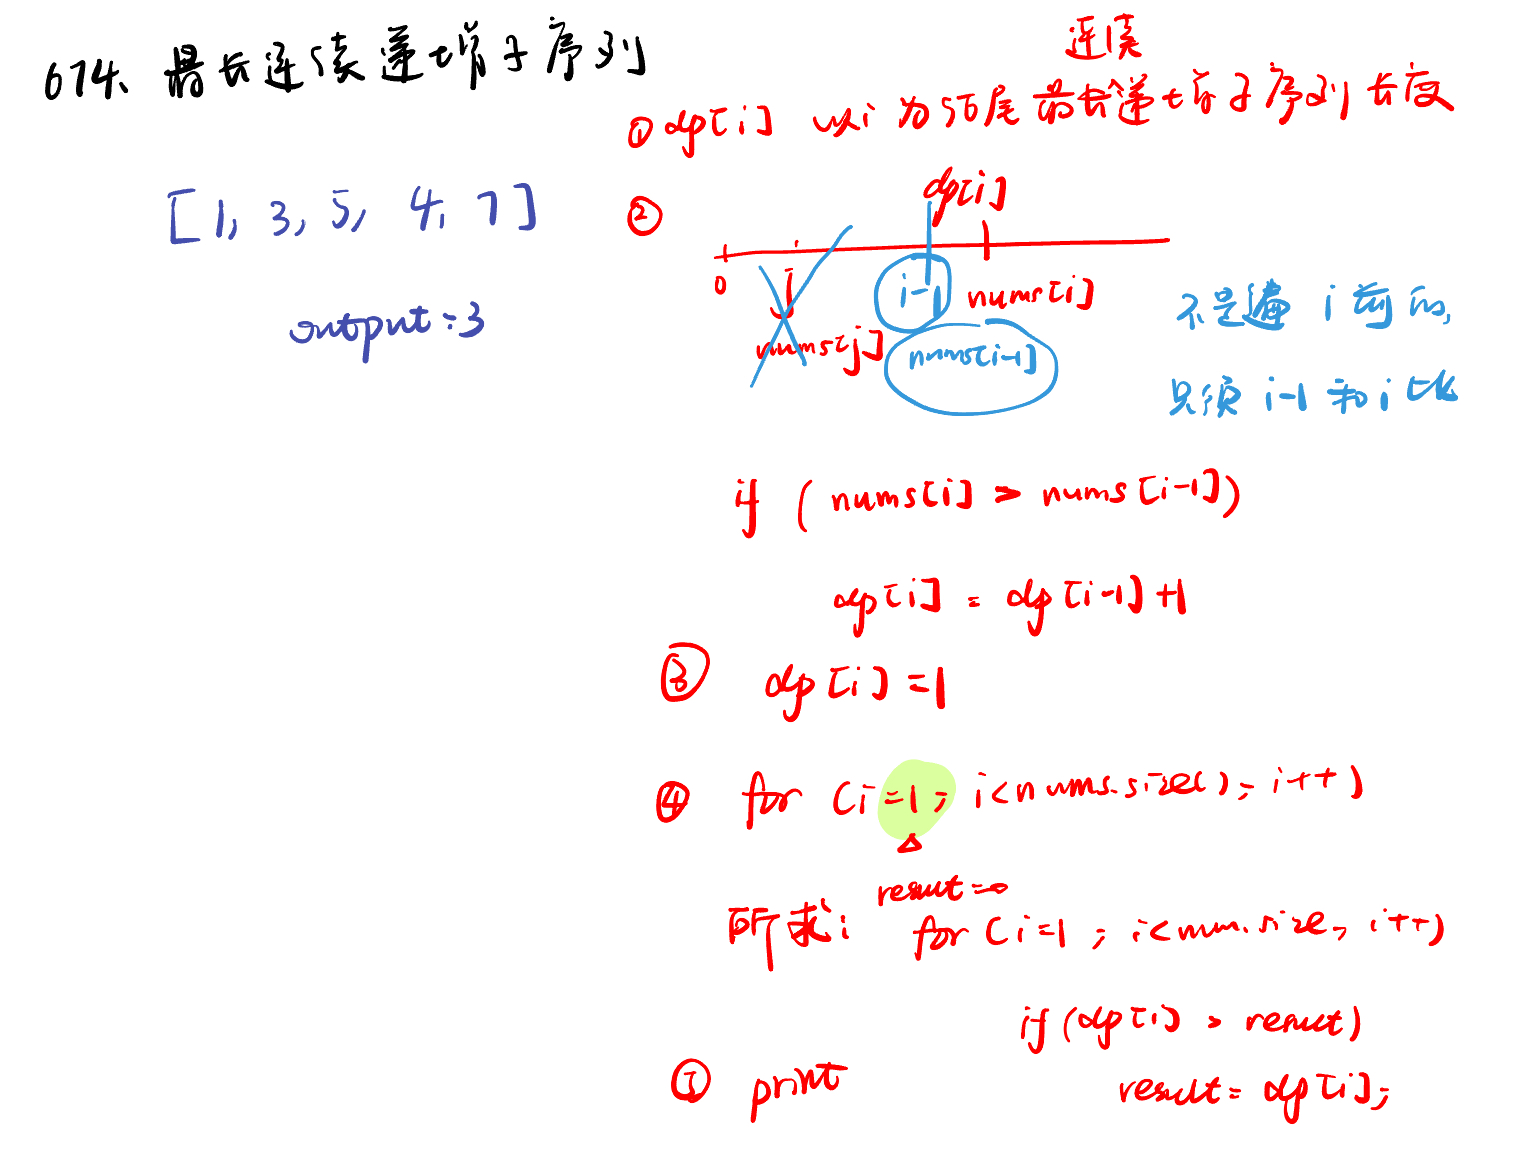 674、最长连续递增子序列
[1, 3, 5, 4, 7]
output:3
连续
① dp[i] 以i为结尾最长递增子序列长度
②
dp[i]
0 j i-1 nums[i]
nums[j] nums[i-1]
不是遍 i 前的,
只须 i-1 和 i 比
if ( nums[i] > nums[i-1])
dp[i] = dp[i-1]+1
③ dp[i]=1
④ for (i=1; i<nums.size(); i++)
result=0
所求: for (i=1; i<num.size; i++)
if (dp[i] > result)
result = dp[i];
⑤ print